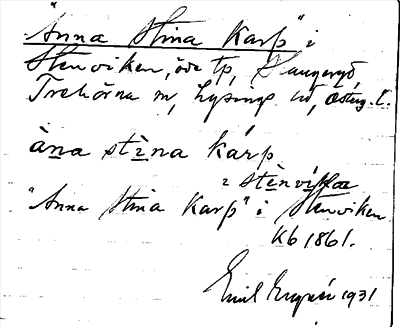 "Anna Stina Karp" i
Stenviken, öde tp,
Trehörna sn, Ydre hd, Östg. l.
àna stìna kárp
i stènvíkaa
"Anna Stina Karp" i Stenviken
Kb 1861.
Emil 1931